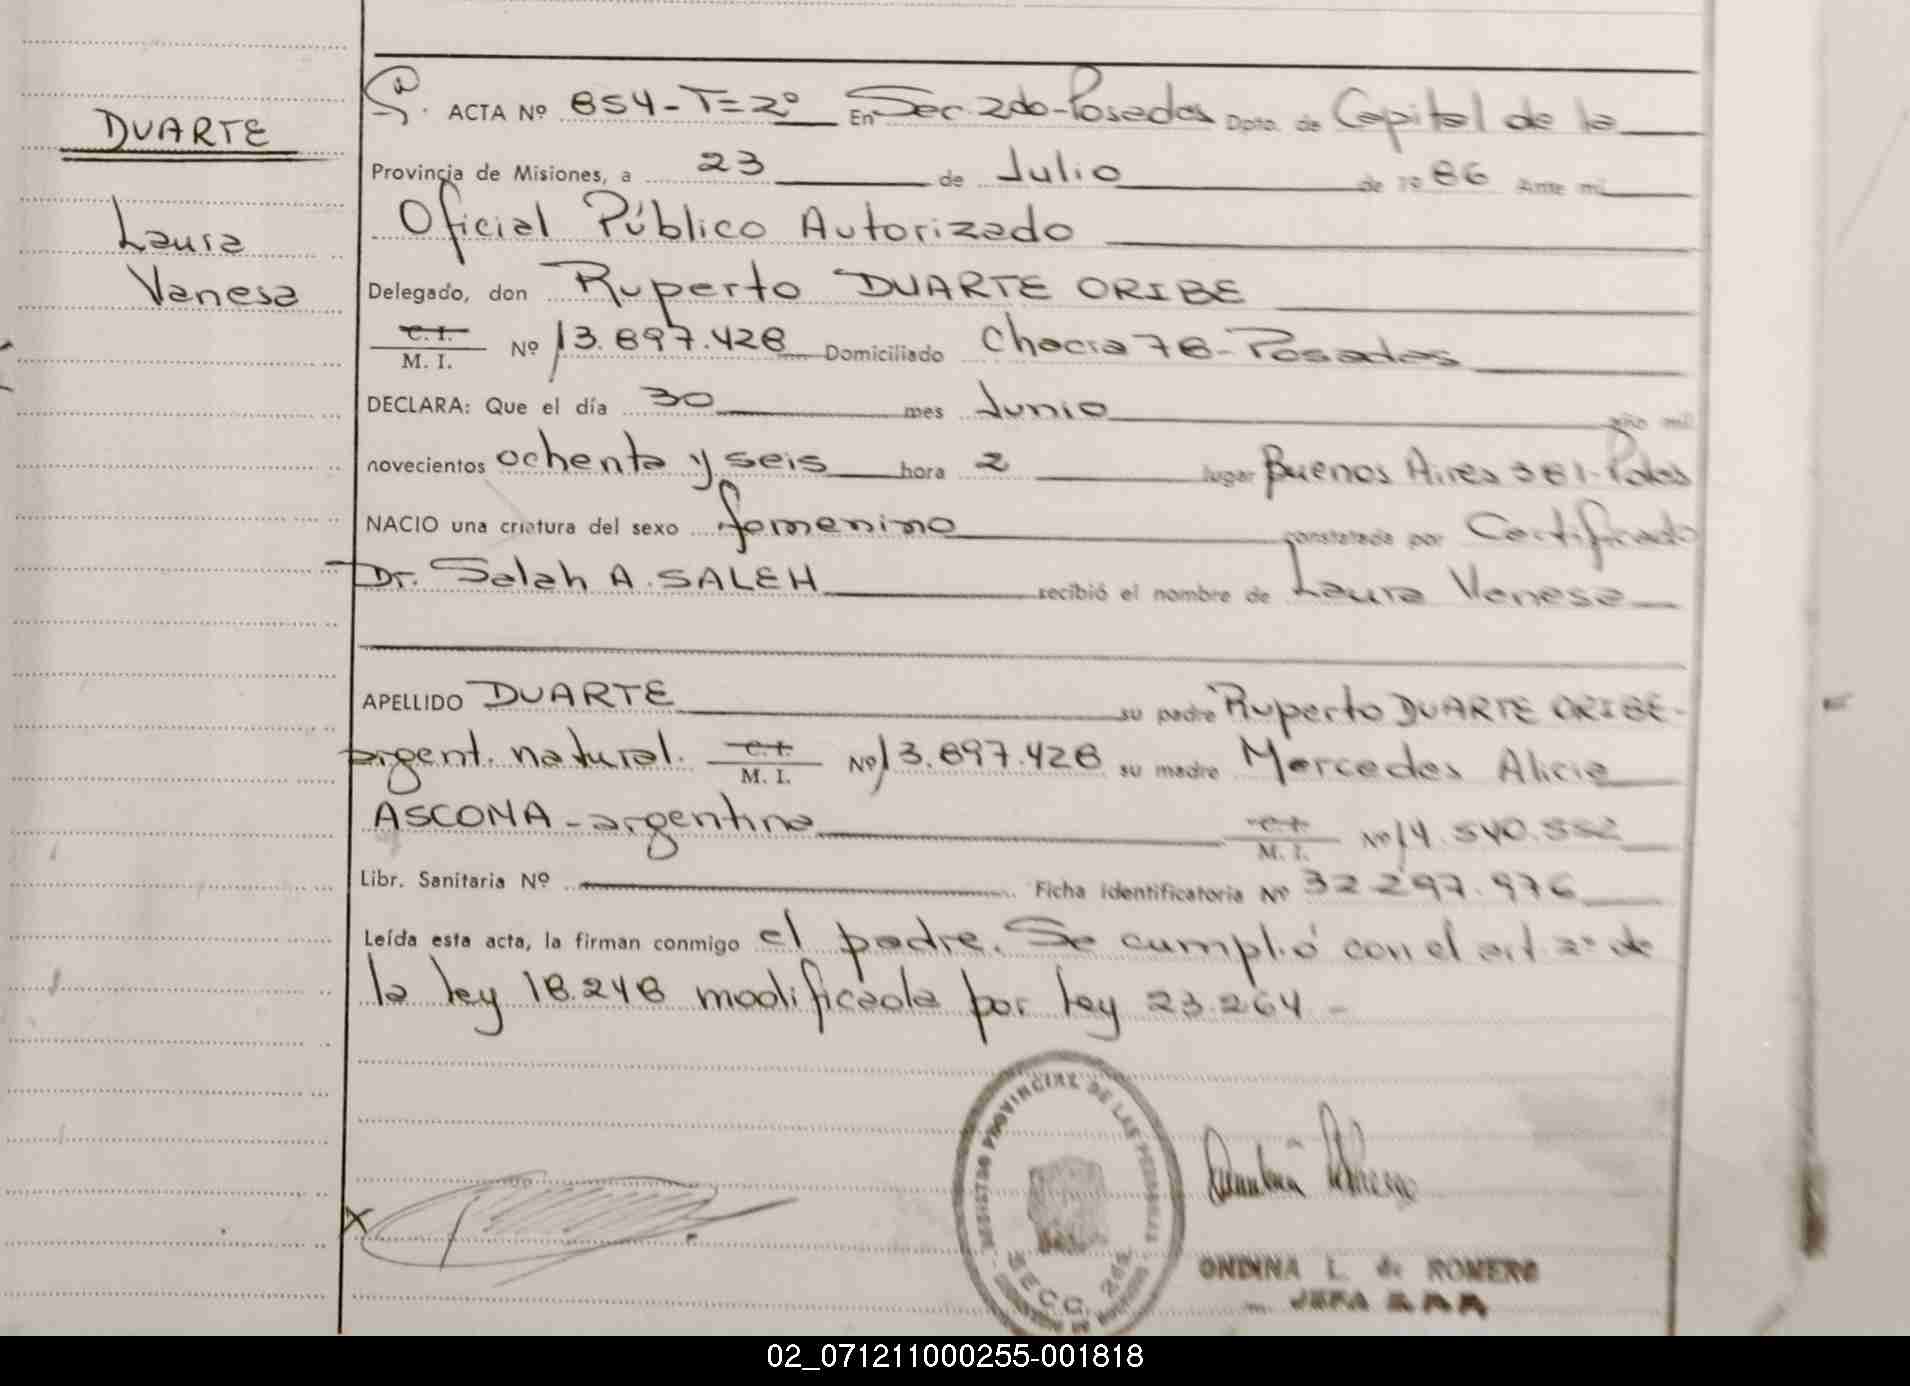 DUARTE
Laura
Vanesa
ACTA Nº 854-T=2º En Sec. 2do-Posadas Dpto. de Capital de la
Provincia de Misiones, a 23 de Julio de 19 86 Ante mi
Oficial Público Autorizado
Delegado, don Ruperto DUARTE ORIBE
C. I.
M. I. Nº 13.897.428 Domiciliado Chacra 78-Posadas
DECLARA: Que el día 30 mes Junio año mil
novecientos ochenta y seis hora 2 lugar Buenos Aires 381-Pdas
NACIO una criatura del sexo femenino constatada por Certificado
Dr. Salah A. SALEH recibió el nombre de Laura Vanesa
APELLIDO DUARTE su padre Ruperto DUARTE ORIBE-
argent. natural. C. I.
M. I. Nº 13.897.428 su madre Mercedes Alicia
ASCONA-argentina C. I.
M. I. Nº 14.540.552
Libr. Sanitaria Nº Ficha identificatoria Nº 32.297.976
Leída esta acta, la firman conmigo el padre. Se cumplió con el art. 2º de
la ley 18.248 modificada por ley 23.264-
REGISTRO PROVINCIAL DE LAS PERSONAS
SECC. 2da.
ONDINA L. de ROMERO
JEFA
02_071211000255-001818